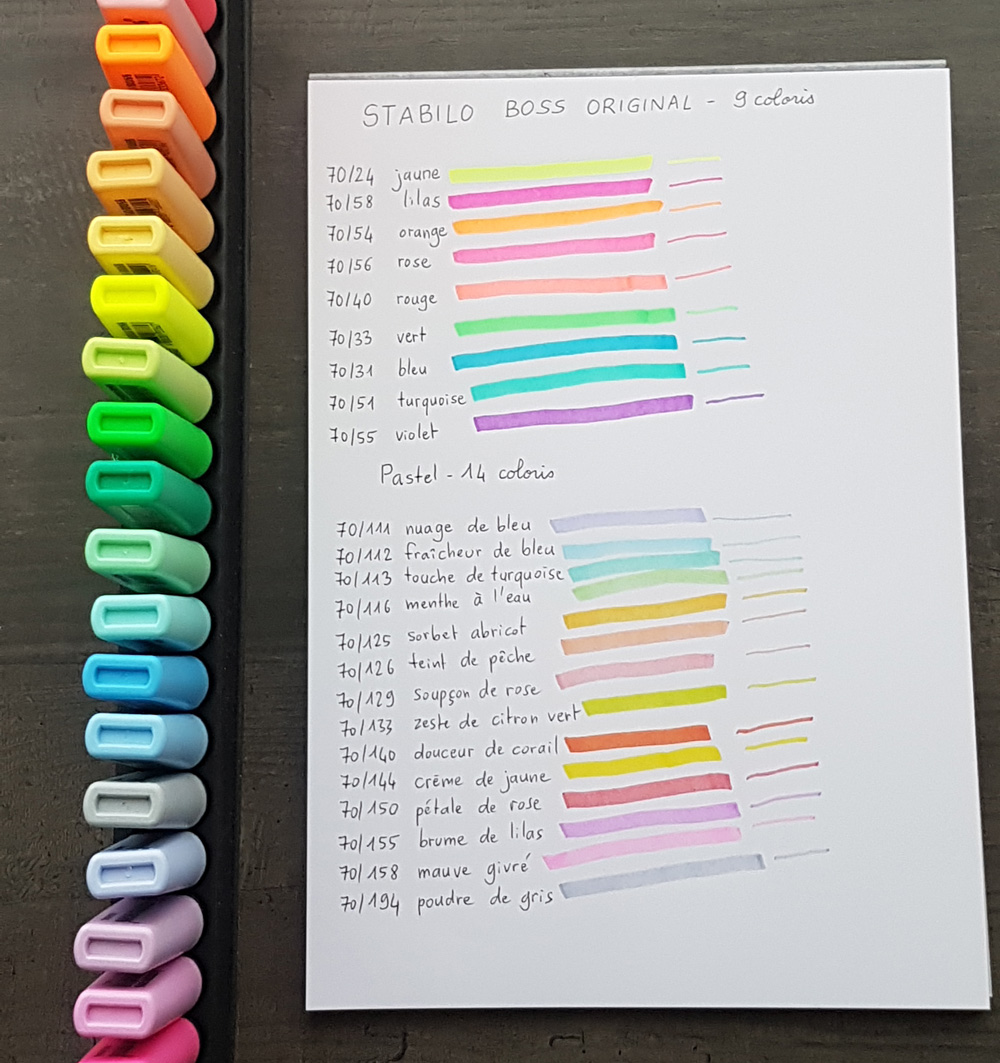 STABILO BOSS ORIGINAL - 9 coloris
70/24 jaune
70/58 lilas
70/54 orange
70/56 rose
70/40 rouge
70/33 vert
70/31 bleu
70/51 turquoise
70/55 violet
Pastel - 14 coloris
70/111 nuage de bleu
70/112 fraîcheur de bleu
70/113 touche de turquoise
70/116 menthe à l'eau
70/125 sorbet abricot
70/126 teint de pêche
70/129 soupçon de rose
70/133 zeste de citron vert
70/140 douceur de corail
70/144 crème de jaune
70/150 pétale de rose
70/155 brume de lilas
70/158 mauve givré
70/194 poudre de gris